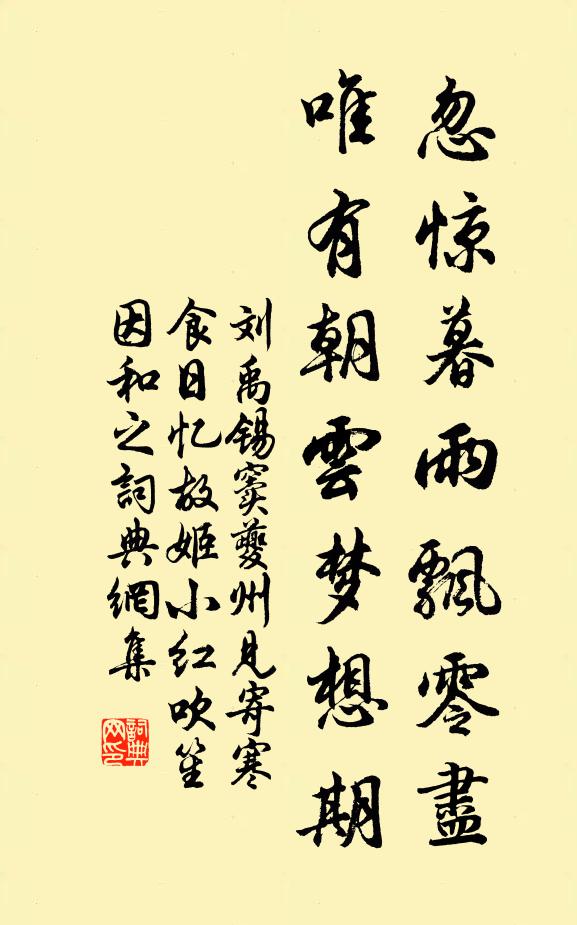 忽惊暮雨飄零盡
唯有朝雲梦想期
刘禹锡窦夔州见寄寒
食日忆故姬小红吹笙
因和之詞典網集
詞典
网印